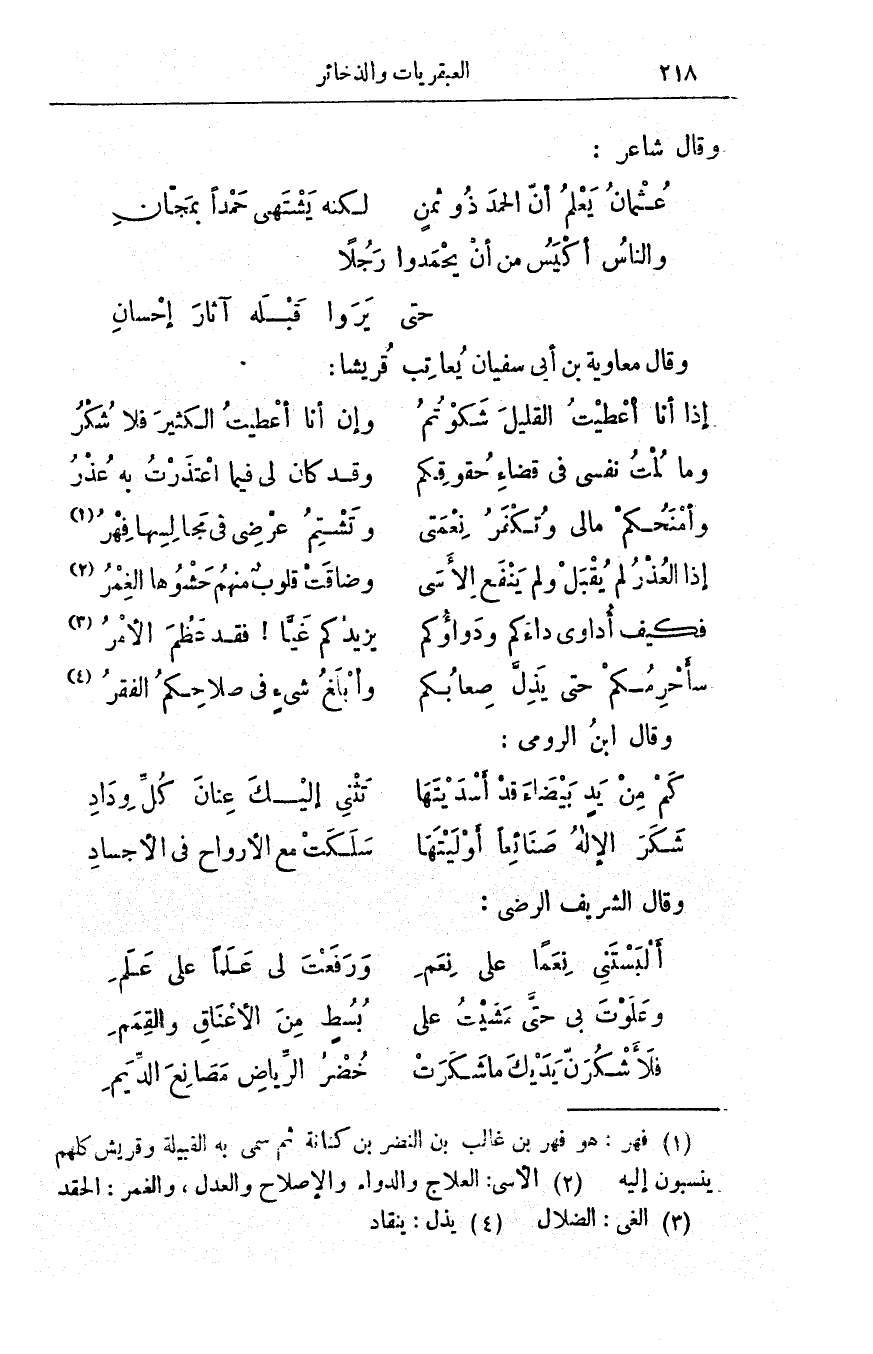 ٢١٨ العبقريات والذخائر
وقال شاعر :
عُثْمانُ يَعْلمُ أنّ الحمدَ ذُو ثمنٍ لكنه يَشْتَهى حَمْداً بمَجّانِ
والناسُ أكْيَسُ من أنْ يحْمَدوا رَجُلًا
حتى يَرَوا قَبْله آثارَ إحْسانِ
وقال معاوية بن أبى سفيان يُعاتِب قُريشا :
إذا أنا أعْطيْتُ القليلَ شَكوْتُمُ وإن أنا أعْطيتُ الكثيرَ فلا شُكْرُ
وما لُمْتُ نفسى فى قضاءِ حُقوقِكم وقد كان لى فيما اعْتذَرْتُ به عُذْرُ
وأمْنَحُكمْ مالى وتُكْفَرُ نِعْمَتى وتَشْتِمُ عرْضِى فى مَجالِسِها فِهْرُ (١)
إذا العُذْرُ لم يُقْبَلْ ولم يَنْفَع الأَسَى وضاقَتْ قلوبٌ منهمُ حَشْوُها الغِمْرُ (٢)
فكيف أُداوى داءَكم ودَواؤُكم يزيدُكم غَيًّا ! فقد عَظُمَ الأمْرُ (٣)
سأَحْرِمُكمْ حتى يَذِلَّ صِعابُكم وأبْلَغُ شىءٍ فى صلاحِكمُ الفقرُ (٤)
وقال ابنُ الرومى :
كَمْ مِنْ يَدٍ بَيْضَاءَ قدْ أَسْدَيْتَهَا تَثْنِى إليْكَ عِنانَ كُلِّ وِدَادِ
شَكَرَ الإلٰهُ صَنَائعاً أوْلَيْتَهَا سَلَكَتْ مع الأرواح فى الأجسادِ
وقال الشريف الرضى :
أَلْبَسْتَنِى نِعَمًا على نِعَمِ وَرَفَعْتَ لى عَلَماً على عَلَمِ
وعَلَوْتَ بى حتَّى مَشَيْتُ على بُسُطٍ مِنَ الأعْنَاقِ والقِمَمِ
فلَأَشْكُرَنّ يَدَيْكَ ما شَكَرَتْ خُضْرُ الرِّياضِ مَصَانِعَ الدِّيَمِ
(١) فهر : هو فهر بن غالب بن النضر بن كنانة ثم سمى به القبيلة وقريش كلهم
ينسبون إليه (٢) الأسى : العلاج والدواء والإصلاح والعدل ، والغمر : الحقد
(٣) الغى : الضلال (٤) يذل : ينقاد